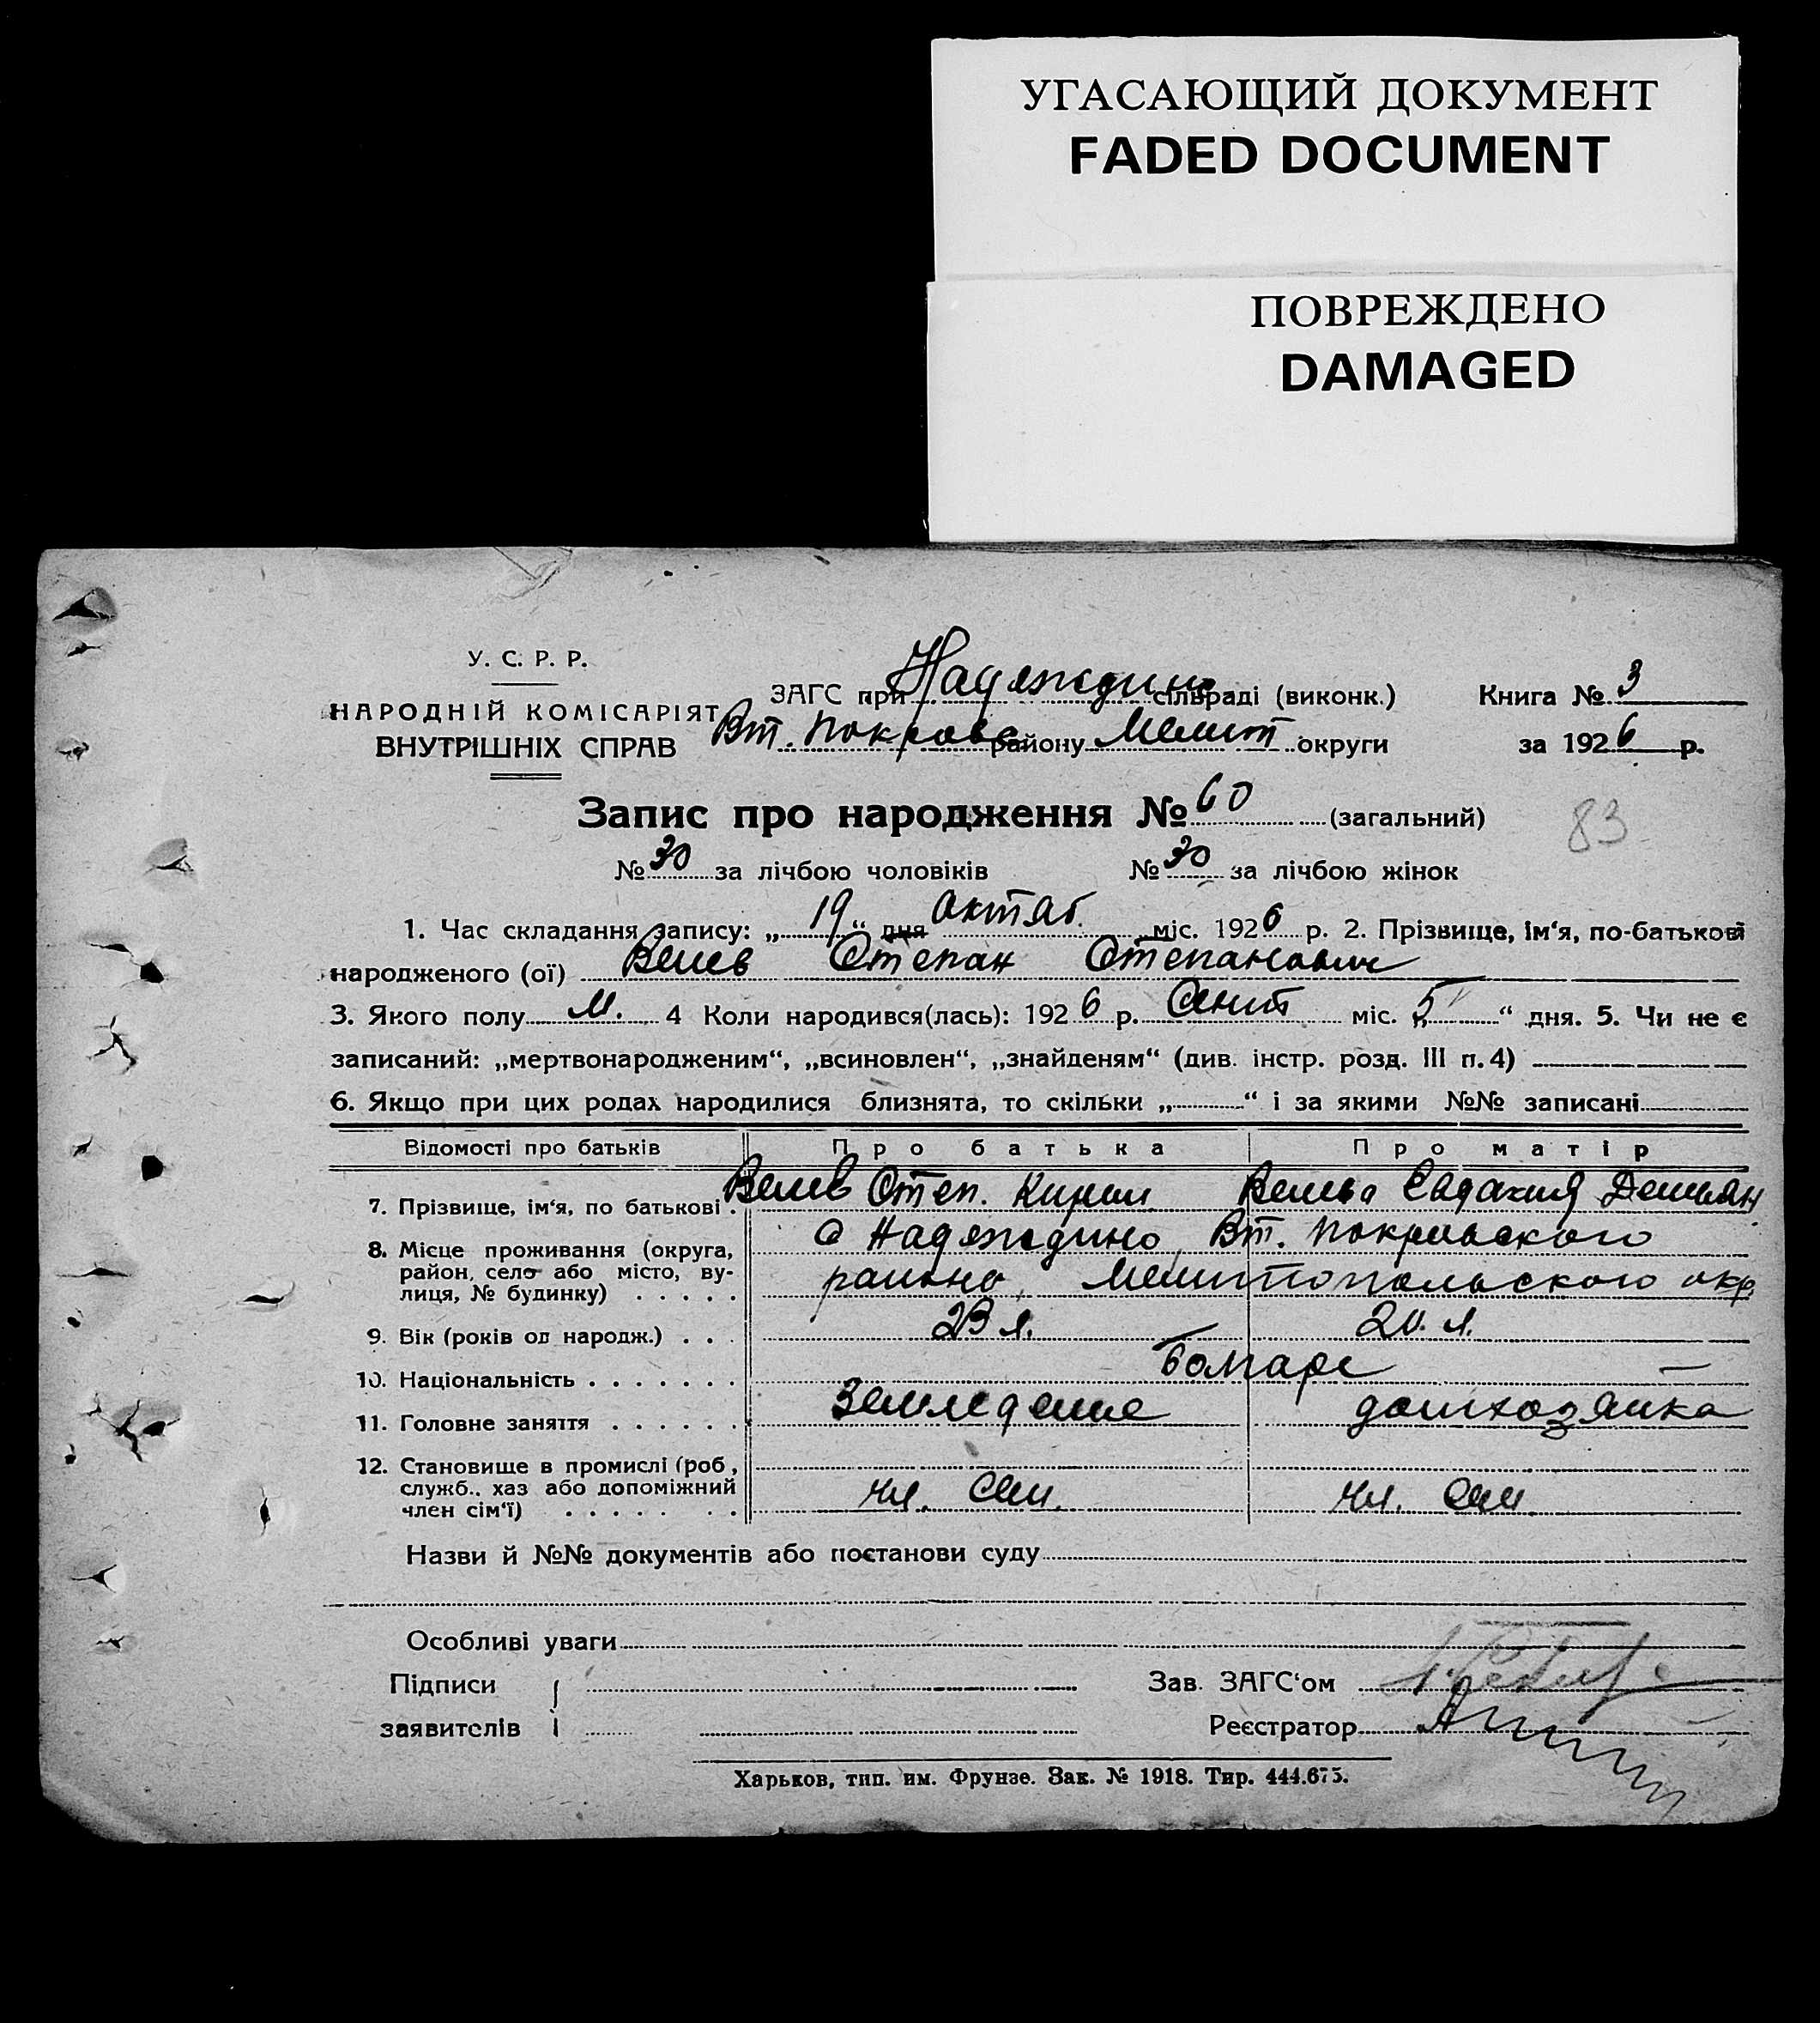 УГАСАЮЩИЙ ДОКУМЕНТ
FADED DOCUMENT
ПОВРЕЖДЕНО
DAMAGED
У. С. Р. Р.
НАРОДНІЙ КОМІСАРІЯТ
ВНУТРІШНІХ СПРАВ
ЗАГС при Надеждино сільраді (виконк.) Книга № 3
Вт. Покровс району Мелит округи за 1926 р.
Запис про народження № 60 (загальний)
83
№ 30 за лічбою чоловіків № 30 за лічбою жінок
1. Час складання запису: „19“ дня октяб. міс. 1926 р. 2. Прізвище, ім‘я, по-батькові
народженого (ої) Велев Степан Степанович
3. Якого полу м. 4 Коли народився(лась): 1926 р. Сент міс. „5“ дня. 5. Чи не є
записаний: „мертвонародженим“, „всиновлен“, „знайденям“ (див. інстр. розд. III п. 4)
6. Якщо при цих родах народилися близнята, то скільки „ “ і за якими №№ записані
Відомості про батьків Про батька Про матір
7. Прізвище, ім‘я, по батькові. Велев Степ. Кирил Велева Евдакия Демьян
8. Місце проживання (округа, район, село або місто, вулиця, № будинку) с Надеждино, Вт. Покровского
района, Мелитопольского окр.
9. Вік (років од народж.) 23 л. 20. л.
10. Національність Болгаре
11. Головне заняття Земледелие домхозяйка
12. Становище в промислі (роб,
служб.. хаз або допоміжний
член сім‘ї) чл. сем. чл. сем
Назви й №№ документів або постанови суду
Особливі уваги
Підписи Зав. ЗАГС‘ом
заявителів Реєстратор
Харьков, тип. им. Фрунзе. Зак. № 1918. Тир. 444.675.